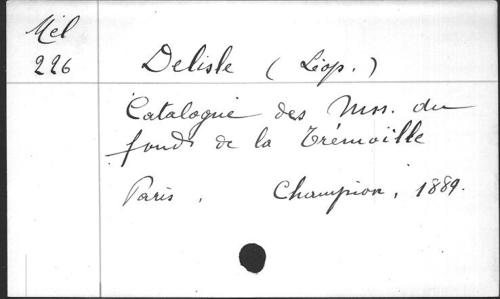 Mél
226
Delisle (Léop.)
Catalogue des Mss. du
fonds de la Trémoille
Paris, Champion, 1889.